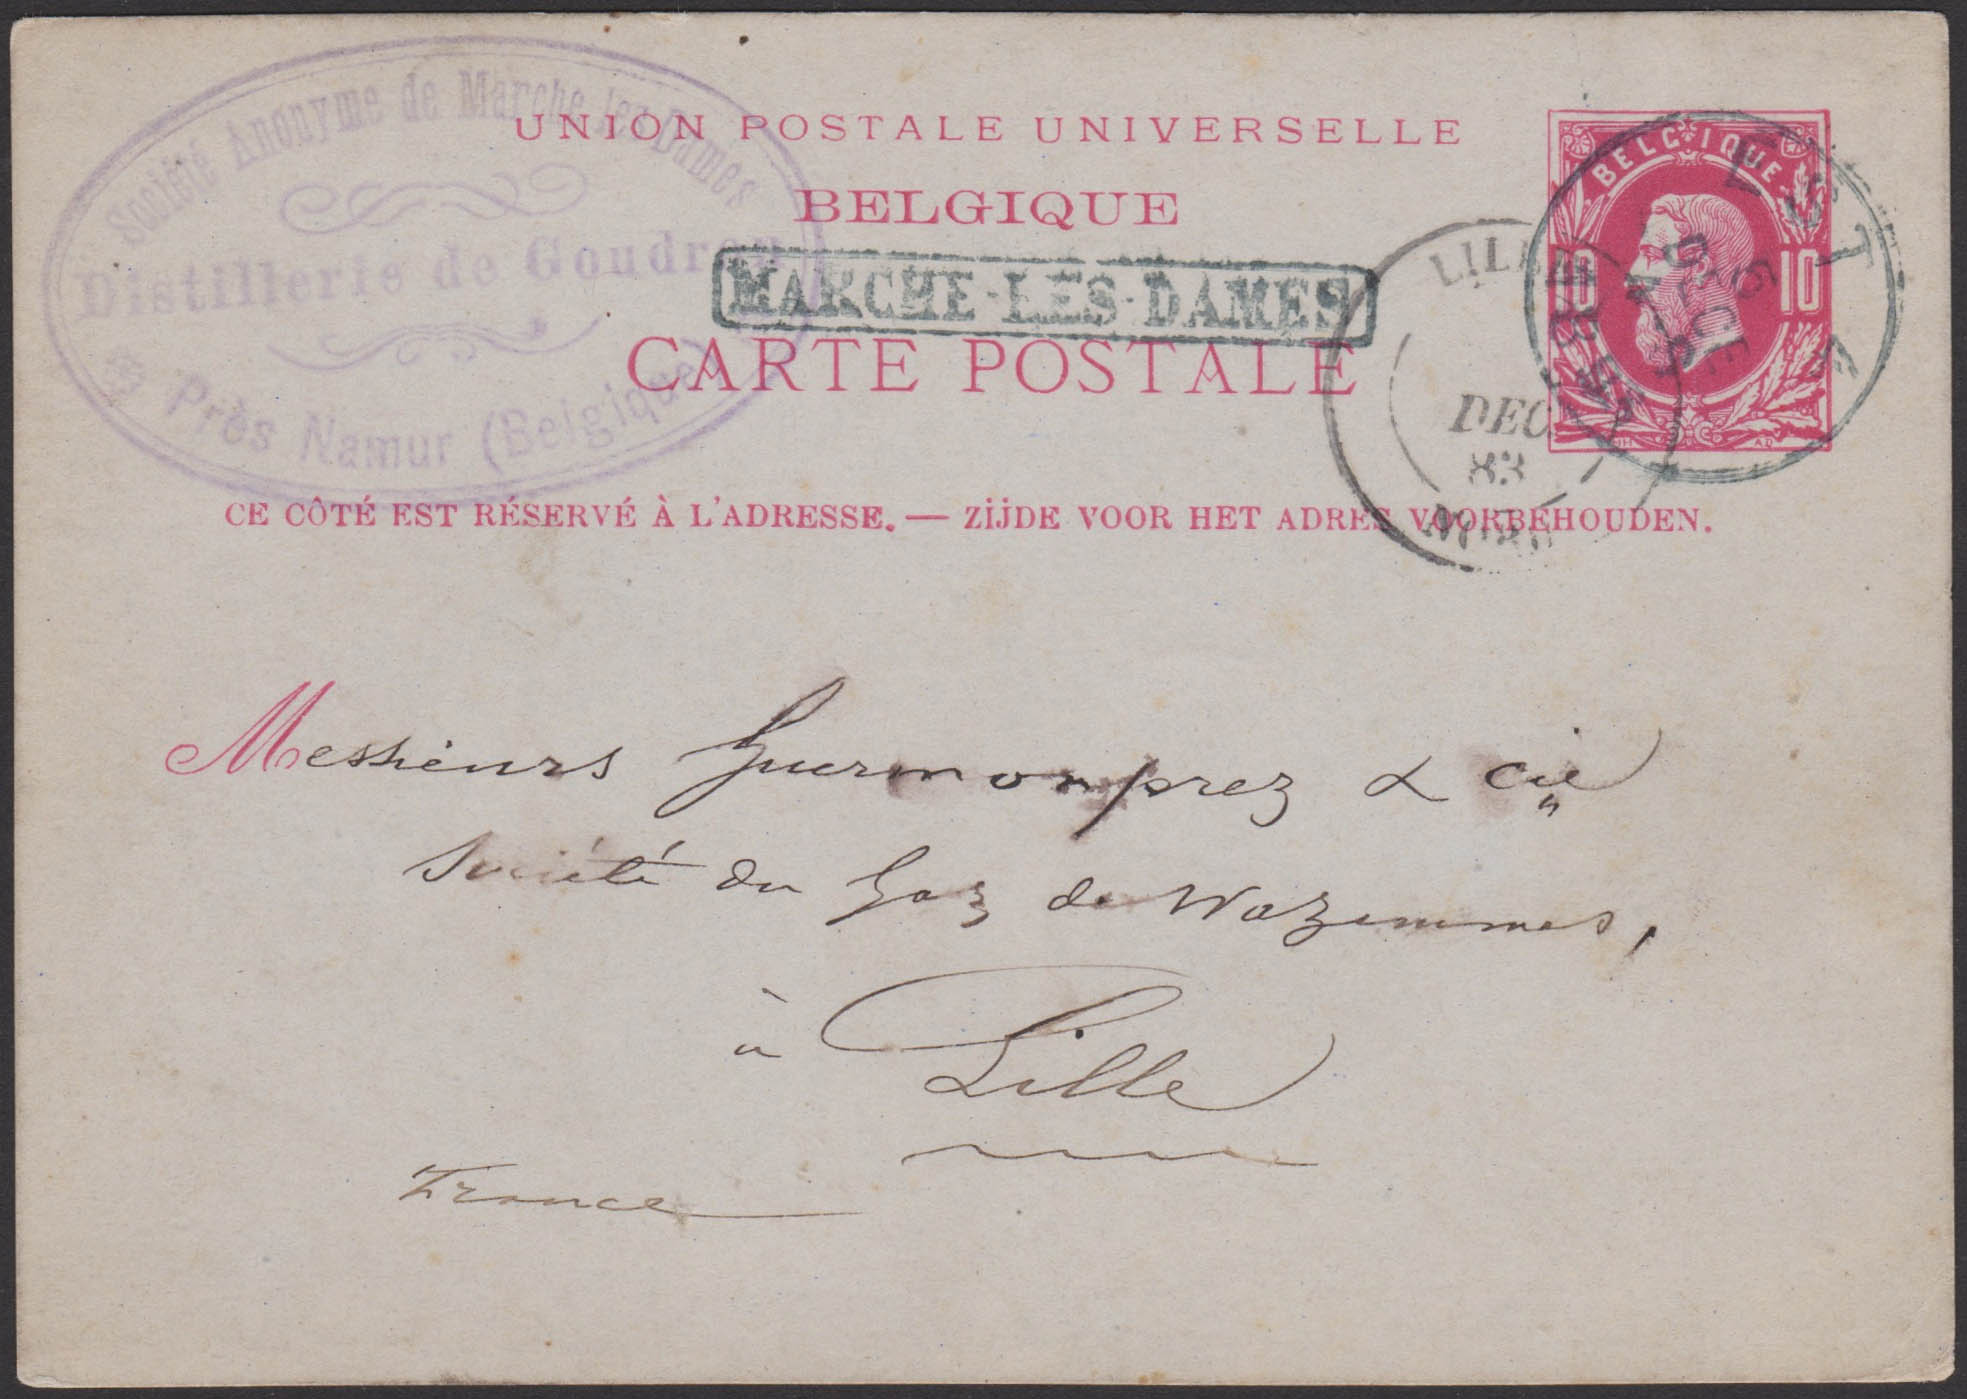 Société Anonyme de Marche les Dames
Distillerie de Goudron
Près Namur (Belgique)
UNION POSTALE UNIVERSELLE
BELGIQUE
MARCHE-LES-DAMES
CARTE POSTALE
CE CÔTÉ EST RÉSERVÉ À L'ADRESSE. — ZIJDE VOOR HET ADRES VOORBEHOUDEN.
BELGIQUE
10 10
LILLE
DEC
83
NORD
EST
DEC
Messieurs Guermonprez & Cie
Société du Gaz de Wazemmes,
à Lille
France